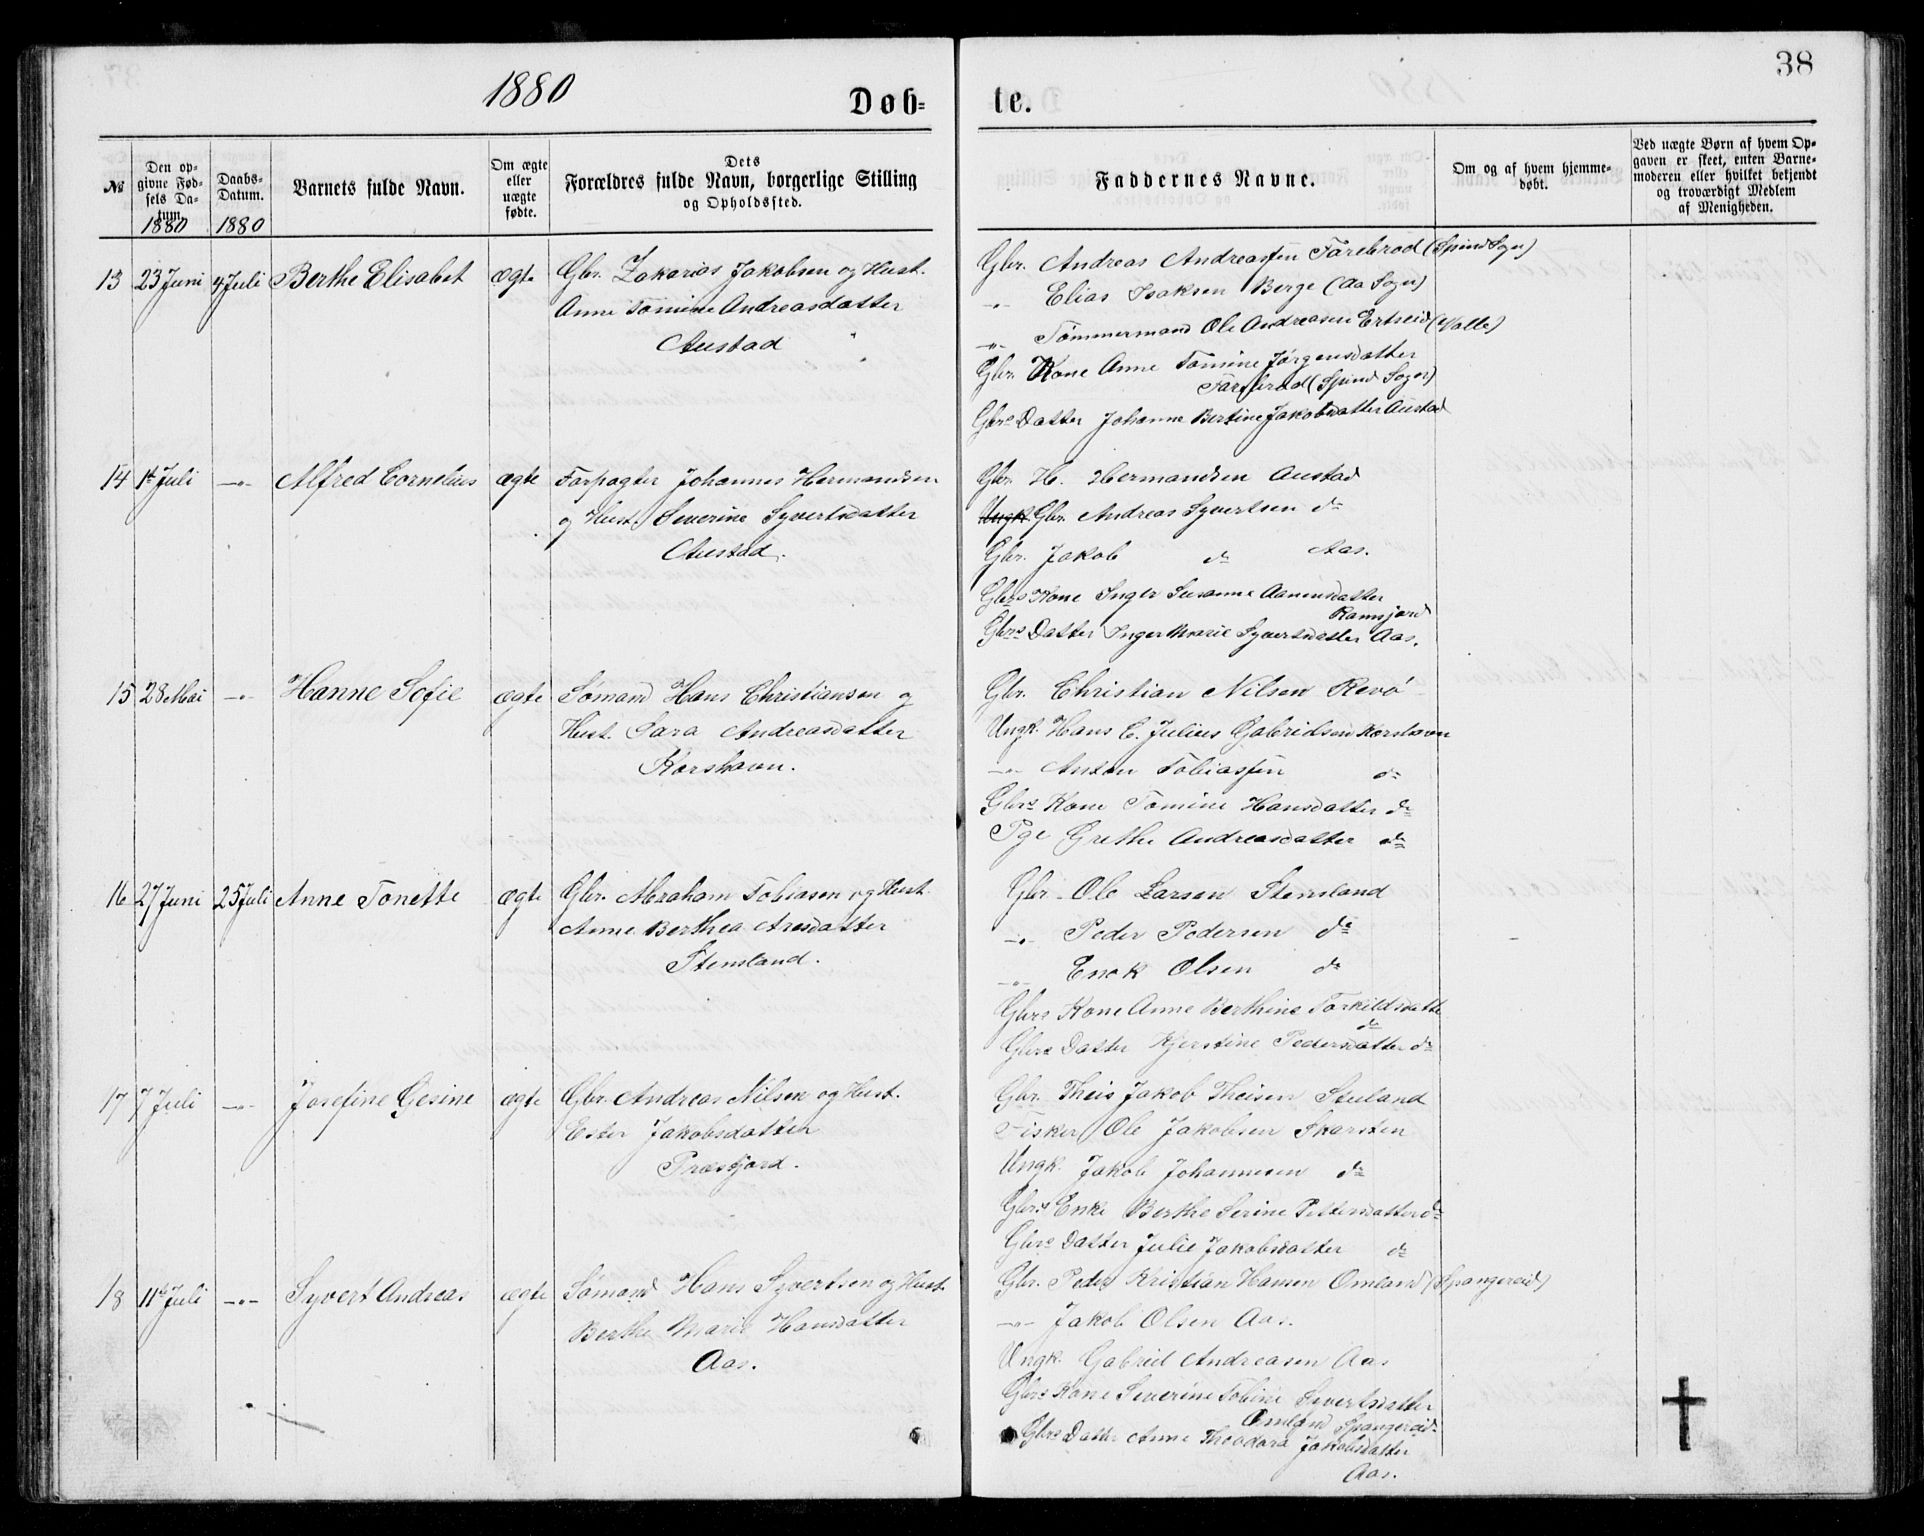 1880
38
Døb-
te.
№
Den op-
givne Fød-
sels Da-
tum.
1880
Daabs-
Datum.
1880
Barnets fulde Navn.
Om ægte
eller
uægte
fødte.
Dets
Forældres fulde Navn, borgerlige Stilling
og Opholdssted.
Faddernes Navne.
Om og af hvem hjemme-
døbt.
Ved uægte Børn af hvem Op-
gaven er skeet, enten Barne-
moderen eller hvilket bekjendt
og troværdigt Medlem
af Menigheden.
13 23 Juni 4 Juli Berthe Elisabet ægte Gbr. Zakarias Jakobsen og Hust.
Anne Tomine Andreasdatter
Austad
Gbr. Andreas Andreassen Farebrod (Spind Sogn)
-"- Elias Isaksen Berge (Aa Sogn)
-"- Tømmermand Ole Andreasen Ertseid (Valle)
Gbr. Kone Anne Tomine Jørgensdatter
Farebrod (Spind Sogn)
Gbrs Datter Johanne Bertine Jakobsdatter Austad
14 1t Juli -"- Alfred Cornelius ægte Forpagter Johannes Hermandsen
og Hust. Severine Syvertsdatter
Austad.
Gbr. H. Hermandsen Austad
Ungk. Gbr. Andreas Syvertsen do
Gbr. Jakob do Aas.
Gbrs Kone Inger Susanne Aanensdatter
Ramsjord
Gbrs Datter Inger Marie Syvertsdatter Aas.
15 28 Mai -"- Hanne Sofie ægte Sømand Hans Christiansen og
Hust. Sara Andreasdatter
Korshavn.
Gbr. Christian Nilsen Revø
Ungk. Hans C. Julius Gabrielsen Korshavn
-"- Anton Tobiassen do
Gbrs Kone Tomine Hansdatter do
Pge Grethe Andreasdatter do
16 27 Juni 25 Juli Anne Tonette ægte Gbr. Abraham Tobiasen og Hust.
Anne Berthea Aresdatter
Stensland.
Gbr. Ole Larsen Stensland
-"- Peder Pedersen do
-"- Enok Olsen do
Gbrs Kone Anne Berthine Torkildsdatte
do
Gbrs Datter Kjerstine Pedersdatter do
17 7 Juli -"- Josefine Gesine ægte Gbr. Andreas Nilsen og Hust.
Ester Jakobsdatter
Præstjord.
Gbr. Theis Jakob Theisen Stuland
Fisker Ole Jakobsen Skarsten
Ungk. Jakob Johannesen do
Gbrs Enke Berthe Serine Pettersdatter do
Gbrs Datter Julie Jakobsdatter do
18 11te Juli -"- Syvert Andreas ægte Sømand Hans Syvertsen og Hust.
Berthe Marie Hansdatter
Aas.
Gbr. Peder Kristian Hansen Omland (Spangereid)
-"- Jakob Olsen Aas.
Ungk. Gabriel Andreasen Aas
Gbrs Kone Severine Tobine Syvertsdatter
Omland Spangereid.
Gbrs Datter Anne Theodora Jakobsdatter
Aas.